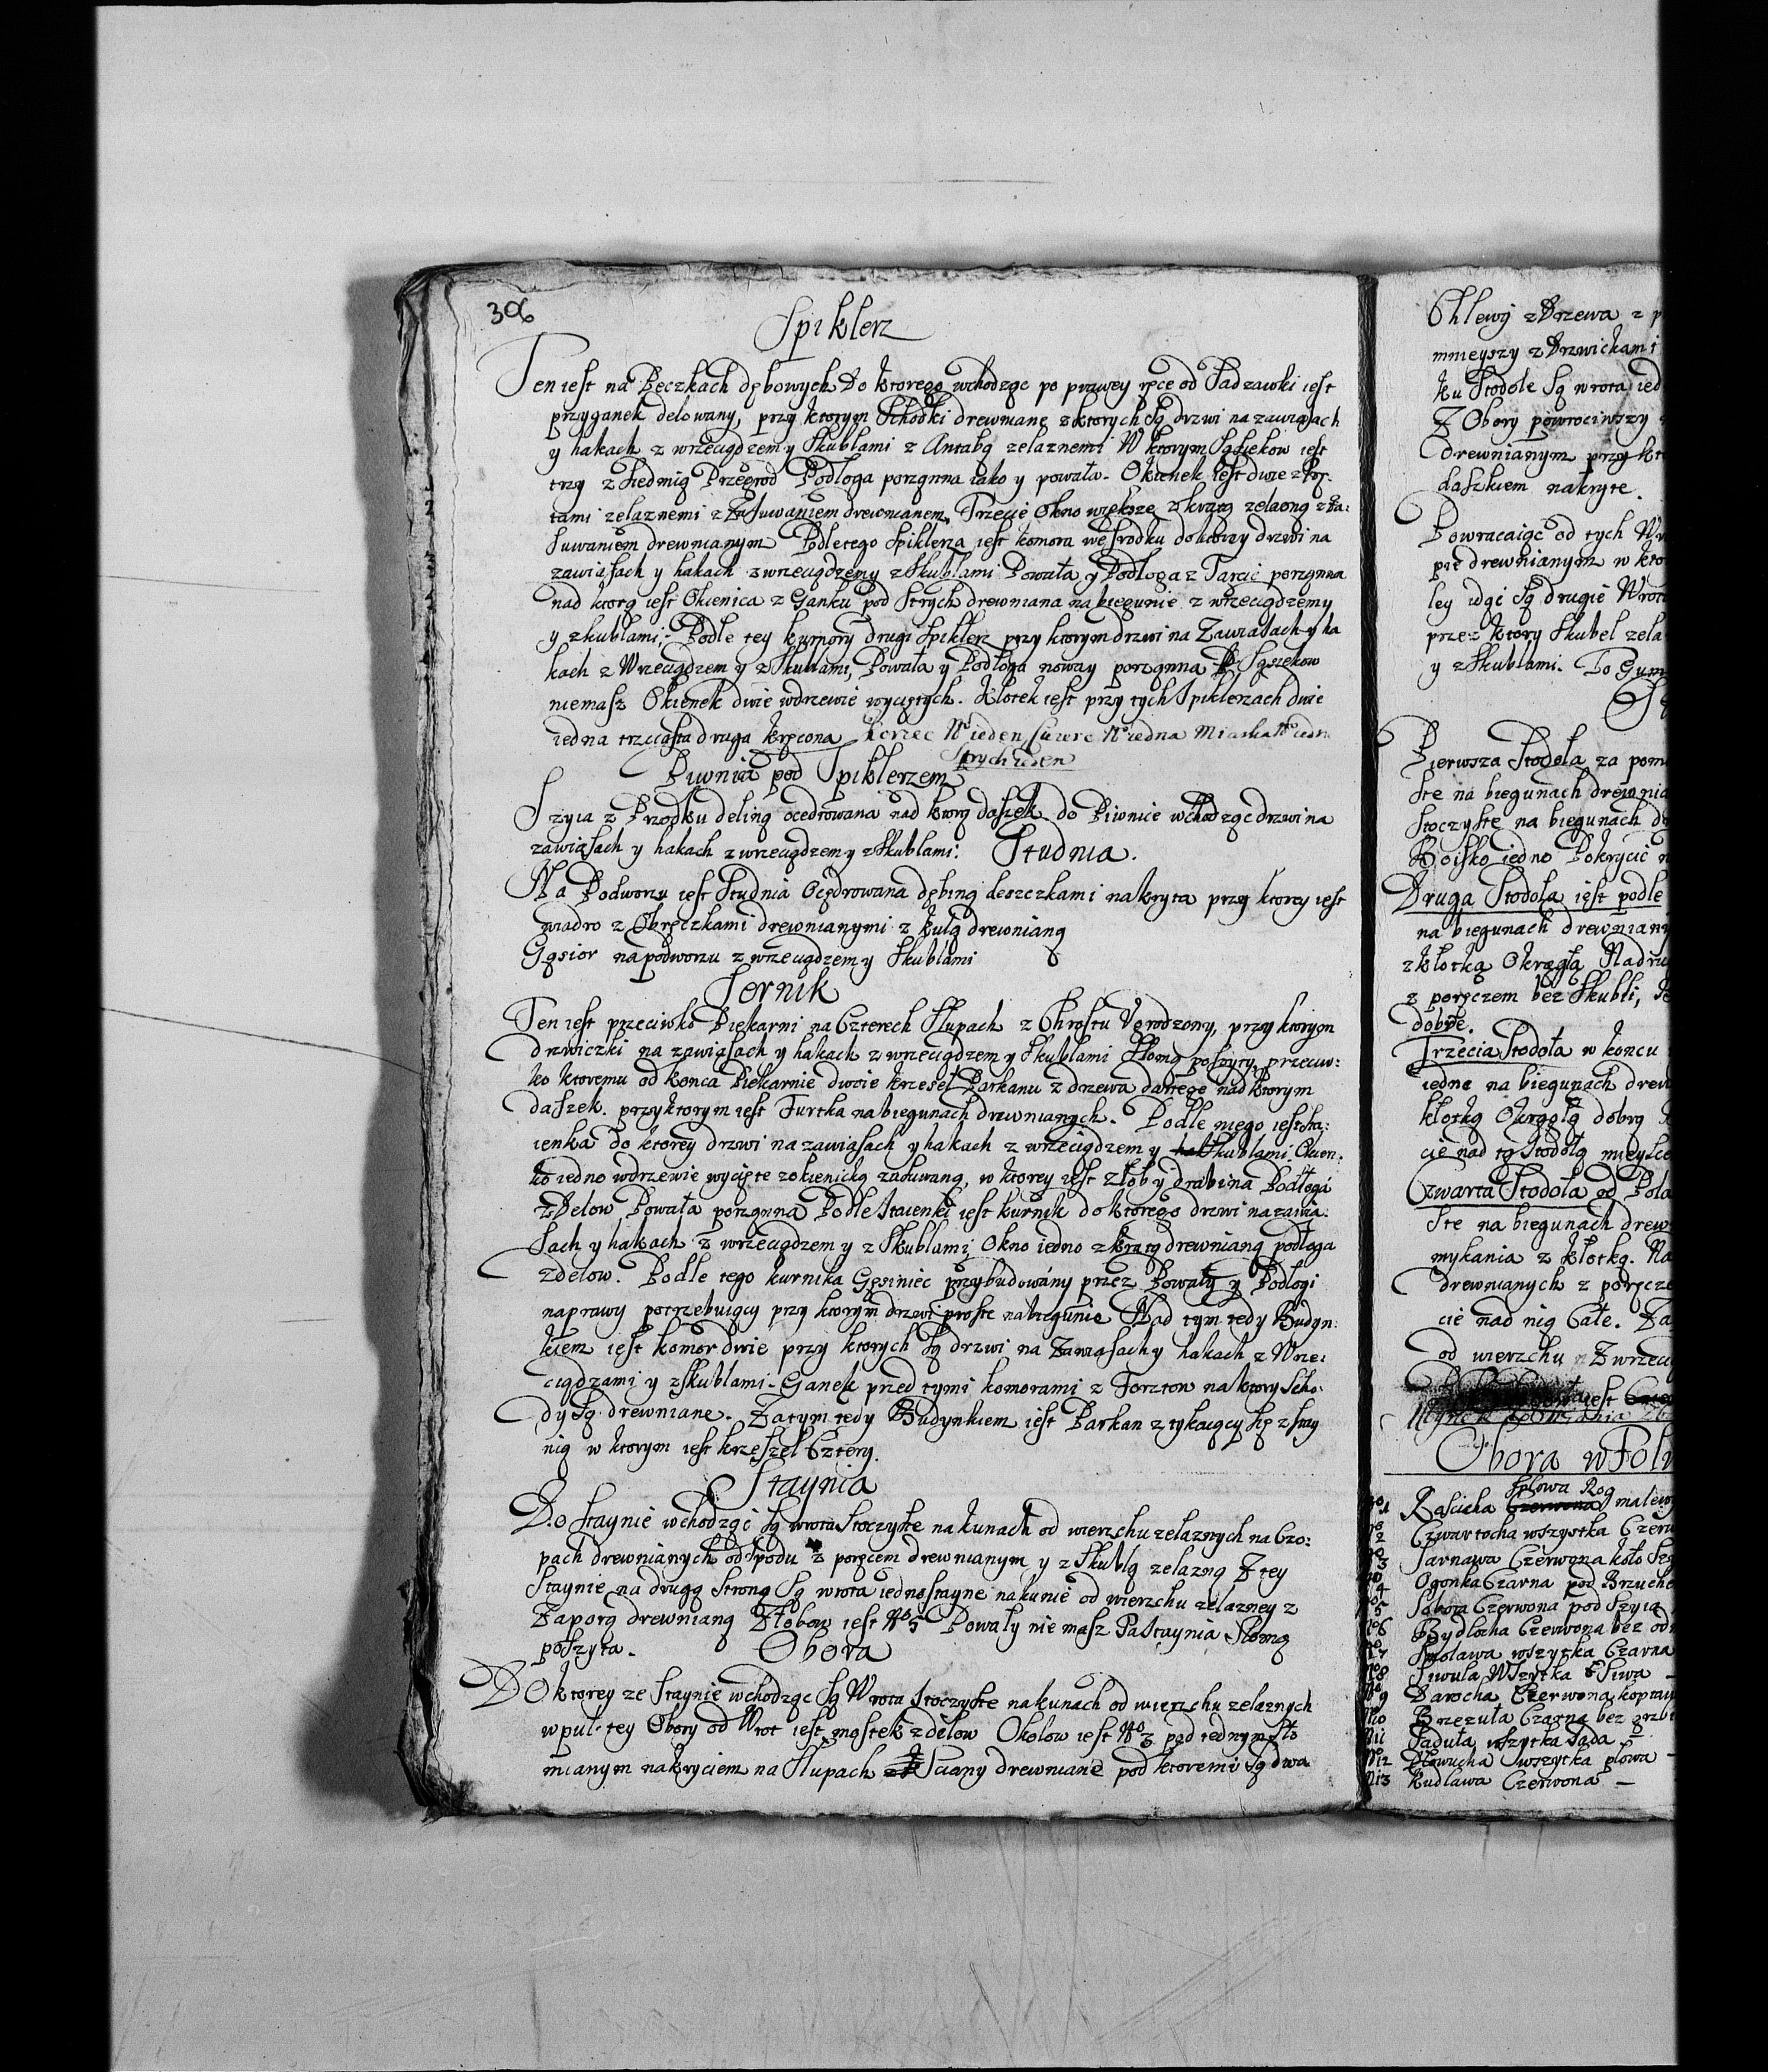 306
Spiklerz
Ten iest na Beczkach dębowych do ktorego wchodząc po prawey ręce od Sadzawki iest
przyganek delowany, przy ktorym Schodki drewniane z ktorych są drzwi na zawiasach
y hakach z wrzeciądzem y Skublami z Antabą zelaznemi W ktorym Sąsiekow iest
trzy z Siedmią Przegrod Podloga porząnna iako y powała. Okienek iest dwie z
tami zelaznemi z Zasuwaniem drewnianem, Trzecie Okno większe z kratą zelazną z Za:
suwaniem drewnianym Podle tego Spiklerza iest komora we srodku do ktorey drzwi na
zawiasach y hakach z wrzeciądzemy z Skublami Powała y Podloga z Tarcic porządnna
nad ktorą iest Okienica z Ganku pod Strych drewniana na biegunie z wrzeciądzemy
y zkublami;- Podle tey kumory drugi Spiklerz przy ktorym drzwi na Zawiasach y ha
kach z Wrzeciądzem y z Skublami, Powała y Podłoga porządnna Sąsiekow
niemasz Okienek dwie wdrzewie wyciętych. Klotek iest przy tych Spiklerzach dwie
iedna trzciasta druga kręcona korzec No ieden No iedna Miarka No iedn
Strych ieden
Piwnia pod Spiklerzem
Szyia z Przodku deliną ocedrowana nad ktorą daszek do Piwnice wchodząc drzwi na
zawiasach y hakach z wrzeciądzem y z Skublami: Studnia.
Na Podworzu iest Studnia Ocędrowana dębiną deszczkami nakryta przy ktorey iest
wiadro z Obręczkami drewnianymi z kulą drewnianą
Gąsior na podworzu z wrzeciądzem y Skublami
Sernik
Ten iest przeciwko Piekarni na Czterech Słupach z Chrostu Ugrodzony, przy ktorym
drzwiczki na zawiasach y hakach z wrzeciądzem y Skublami Słomą poszyty, przeciw:
ko ktoremu od konca Piekarnie dwoie krzeseł Parkanu z drzewa dartego nad ktorym
daszek. przy ktorym iest Furtka na biegunach drewnianych. Podle niego iest sta:
ienka do ktorey drzwi na zawiasach y hakach z wrzeciądzem y Skublami. Okien:
ko iedno wdrzewie wycięte z okienicką zasuwaną, w ktorey iest złob y drabina Podłogá
z Delow Powała porządnna Podle Staienki iest kurnik do ktorego drzwi na zawia:
sach y hakach z wrzeciądzem y z Skublami, Okno iedno z kratą drewnianą podłoga
z delow. Podle tego kurnika Gęsiniec przybudowány przez Powały y Podłogi
naprawy potrzebuiący przy ktorym drzwi proste na biegunie Nad tym tedy Budyn:
kiem iest komor dwie przy ktorych są drzwi na Zawiasach y hakach z Wrze:
ciądzami y zskublami- Ganek przed tymi komorami z Forztow na ktory Scho:
dy są drewniane. Za tym tedy Budynkiem iest Parkan z tykaiący się z stay
nią w ktorym iest krzeseł Cztery.
Staynia
Do staynie wchodząc są wrota Stoczyste na kunach od wierzchu zelaznych na Czo:
pach drewnianych od spodu z poręcem drewnianym y z Skublą zelazną Z tey
Staynie na drugą Stroną są wrota iednostayne na kunie od wierzchu zelazney z
Zaporą drewnianą Złobow iest No 5 Powały nie masz Ta Staynia Słomą
poszyta. Obora
Do ktorey ze Staynie wchodząc są Wrota Stoczyste na kunach od wierzchu zelaznych
w pul tey Obory od Wrot iest mostek z delow Okolow iest No 3 pod iednym sło
mianym nakryciem na Słupach Sciany drewniane pod ktoremi są dwa
Chlewy z Drzewa z
mnieyszy z Drzwickami
ku Stodole są wrota
Z Obory powrociwszy
drewnianym przy
daszkiem nakryte.
Powracaiąc od tych
drewnianym w
ley idąc są drugie
przez ktory Skubel
y z Skublami. To
Pierwsza Stodola za
ste na biegunach
stoczyste na biegunach
Boisko iedno Pokrycie
Druga Stodola iest podle
na biegunach
z kłotką Okrągłą
z poręczem bez Skubli,
dobre.
Trzecia Stodoła w koncu
iedne na biegunach
kłotką Okrągłą dobrą
cie nad tą Stodołą mieysce
Czwarta Stodola od
ste na biegunach
mykania z kłotką. Na
drewnianych z
cie nad nią Całe.
od wierzchu Z
iest
Obora w
płowa Rog
No 1 Raścicha Czerwona
No 2 Czwartocha wszystka
No 3 Sarnawa Czerwona koło
No 4 Ogonka Czarna pod
No 5 Sobota Czerwona pod szyią
No 6 Bydlocha Czerwona bez
No 7 Smolawa wszytka Czarna
No 8 Siwula Wszytka Siwa
No 9 Czerwona
No 10 Brzezuła Czarna bez
No 11 Saduła wszytka Sada
No 12 Płowucha wszytka płowa
No 13 Kudlawa Czerwona